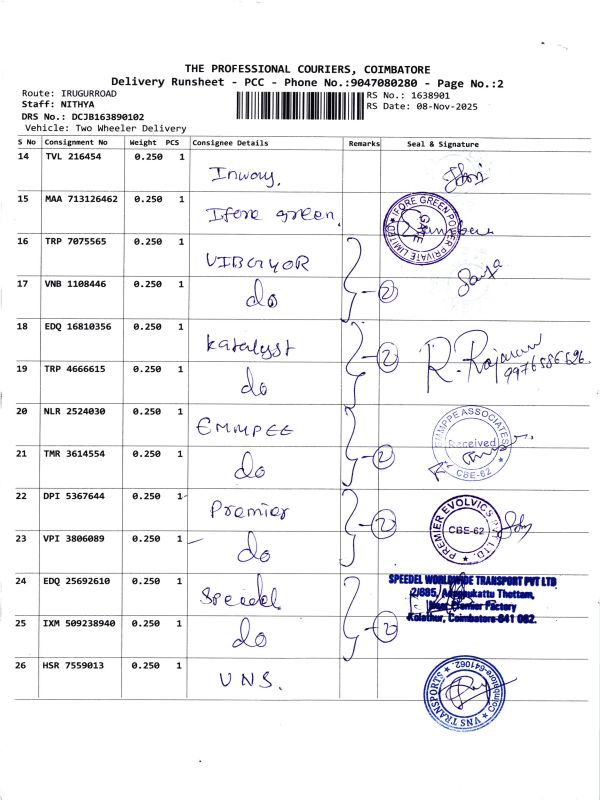 THE PROFESSIONAL COURIERS, COIMBATORE
Delivery Runsheet - PCC - Phone No.:9047080280 - Page No.:2
Route: IRUGURROAD
RS No.: 1638901
Staff: NITHYA
RS Date: 08-Nov-2025
DRS No.: DCJB163890102
Vehicle: Two Wheeler Delivery
S No Consignment No Weight PCS Consignee Details Remarks Seal & Signature
14 TVL 216454 0.250 1 Inway.
15 MAA 713126462 0.250 1 Ifore green.
IFORE GREEN POWER PRIVATE LIMITED
GATE
16 TRP 7075565 0.250 1 VIBGYOR
17 VNB 1108446 0.250 1 do 2
18 EDQ 16810356 0.250 1 Katalyst 2 R. Rajaram
9976586626
19 TRP 4666615 0.250 1 do
20 NLR 2524030 0.250 1 EMMPEE
EMMPPE ASSOCIATES
Received
CBE-62
21 TMR 3614554 0.250 1 do 2
22 DPI 5367644 0.250 1 Premier 2
PREMIER EVOLVICS PVT LTD
CBE-62
23 VPI 3806089 0.250 1 do
24 EDQ 25692610 0.250 1 Speedel
SPEEDEL WORLDWIDE TRANSPORT PVT LTD
2/685, Thottam,
Premier Factory
Kolathur, Coimbatore-641 062.
25 IXM 509238940 0.250 1 do 2
26 HSR 7559013 0.250 1 VNS.
VNS TRANSPORTS
Coimbatore-641062.